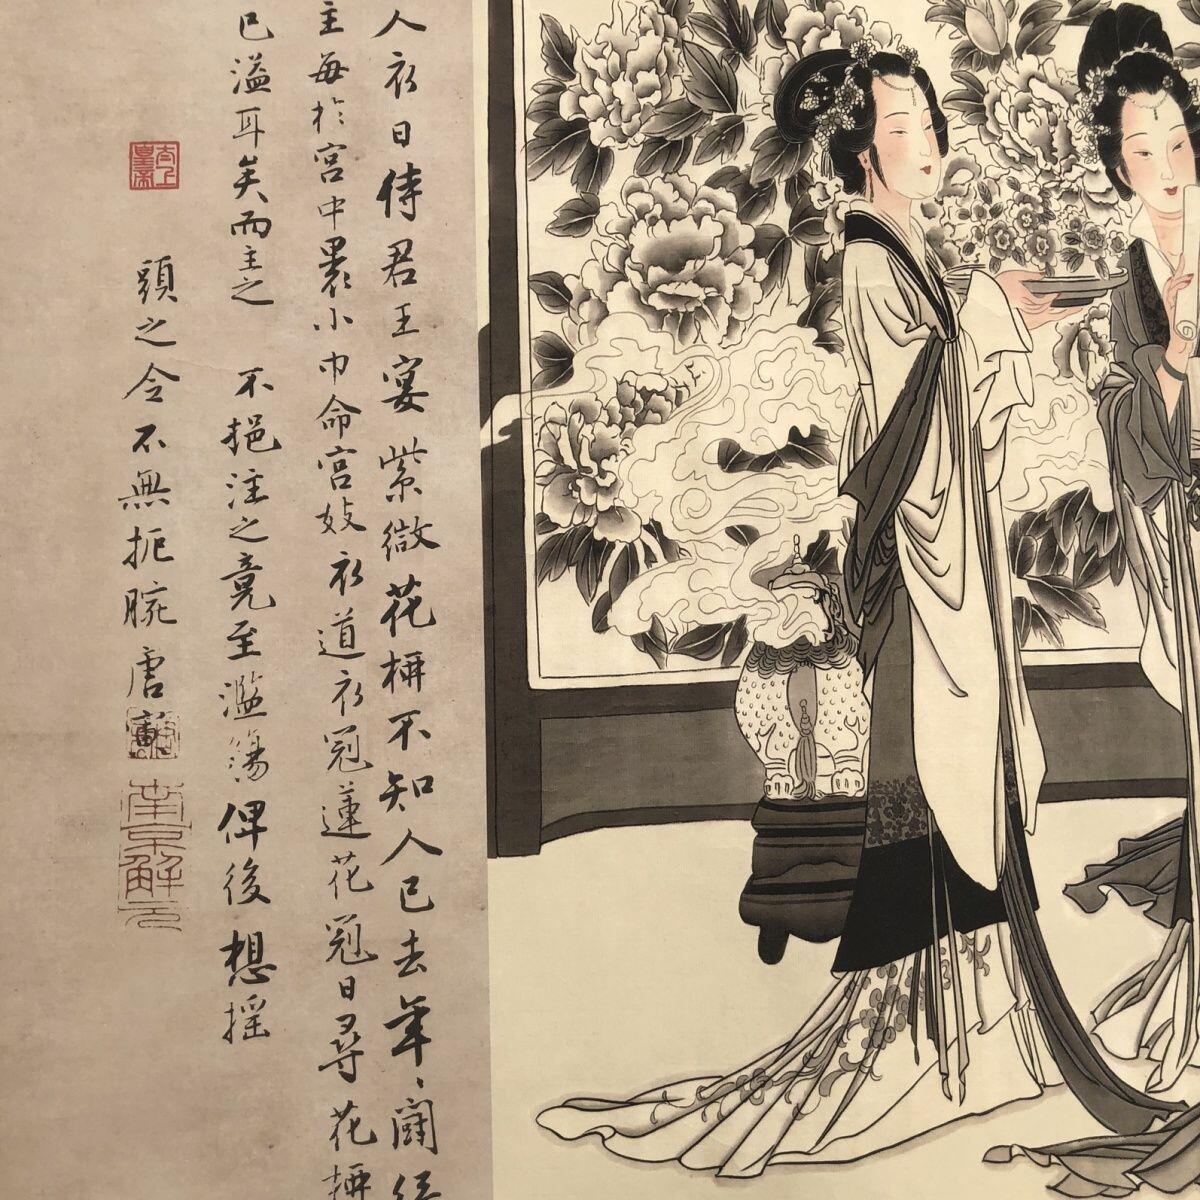 人衣日侍君王宴紫微花柳不知人已去年〻鬪
主每於宮中裹小巾命宮妓衣道衣冠蓮花冠日尋花柳
已溢耳矣而主之不挹注之竟至濫觴俾後想搖
頭之令不無扼腕唐寅
南京解元